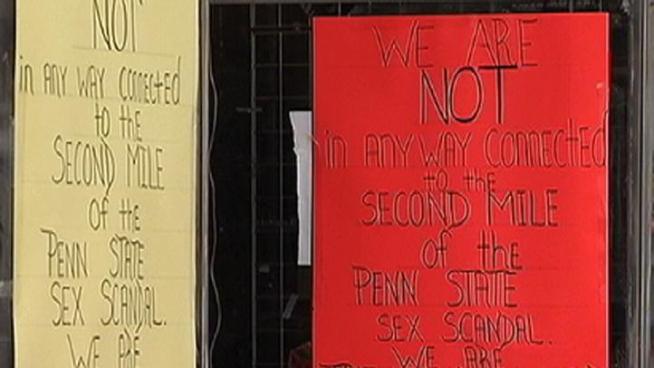 NOT
in ANY WAY CONNECTED
to the
SECOND MILE
of the
PENN STATE
SEX SCANDAL.
WE ARE
WE ARE
NOT
in ANY WAY CONNECTED
to the
SECOND MILE
of the
PENN STATE
SEX SCANDAL.
WE ARE